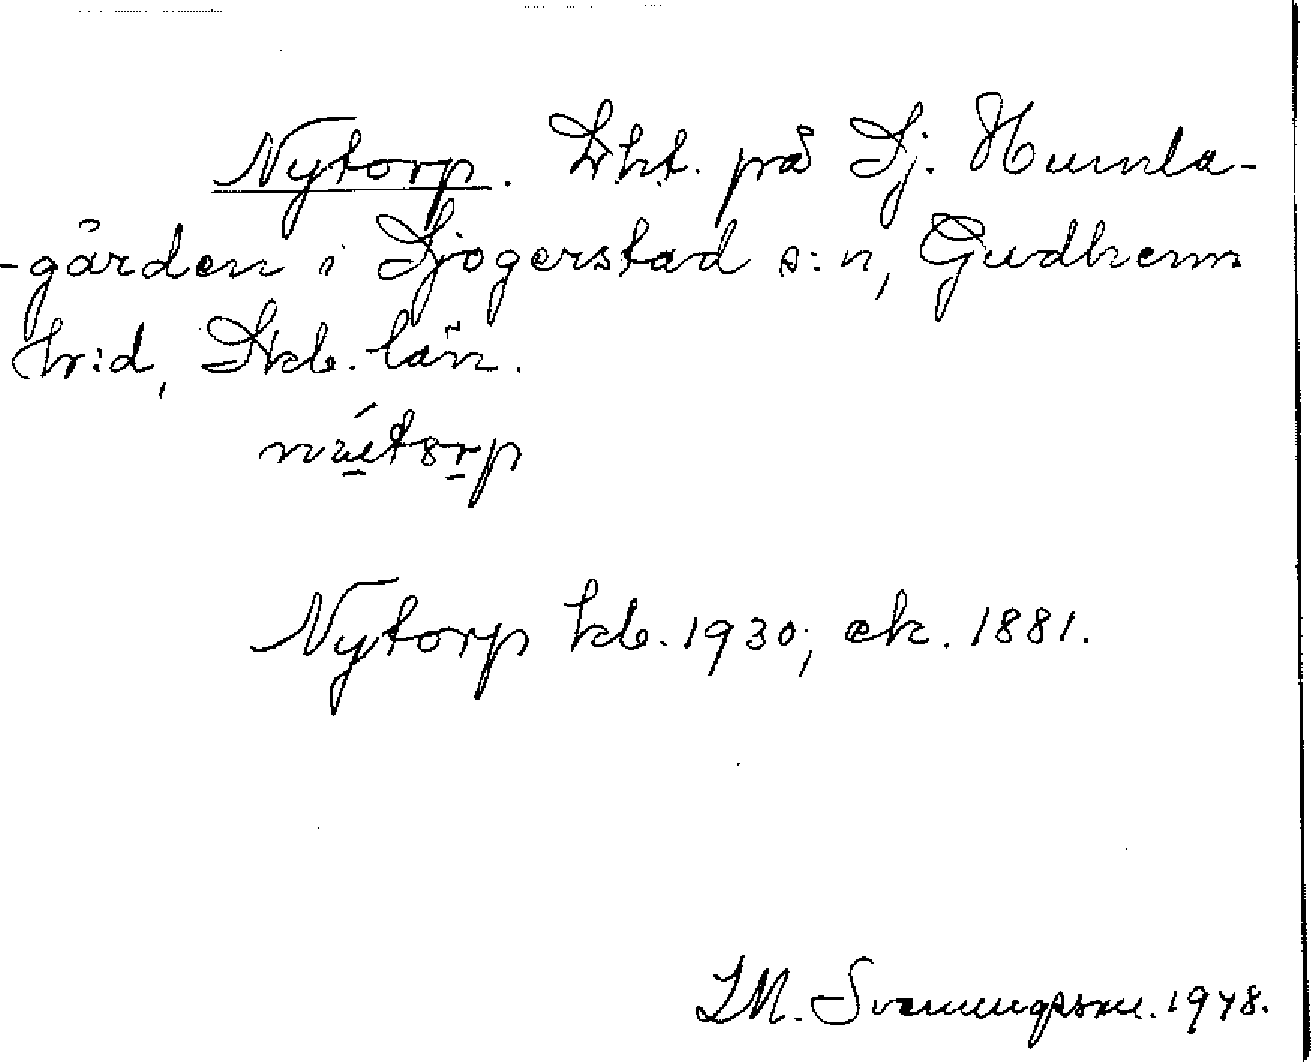 Nytorp. Lht. på Sj. Humla-
-gården i Sjogerstad s:n, Gudhems
hr:d, Skb. län.
Nytorp kb. 1930; ek. 1881.
I.M. Svenungsson. 1948.